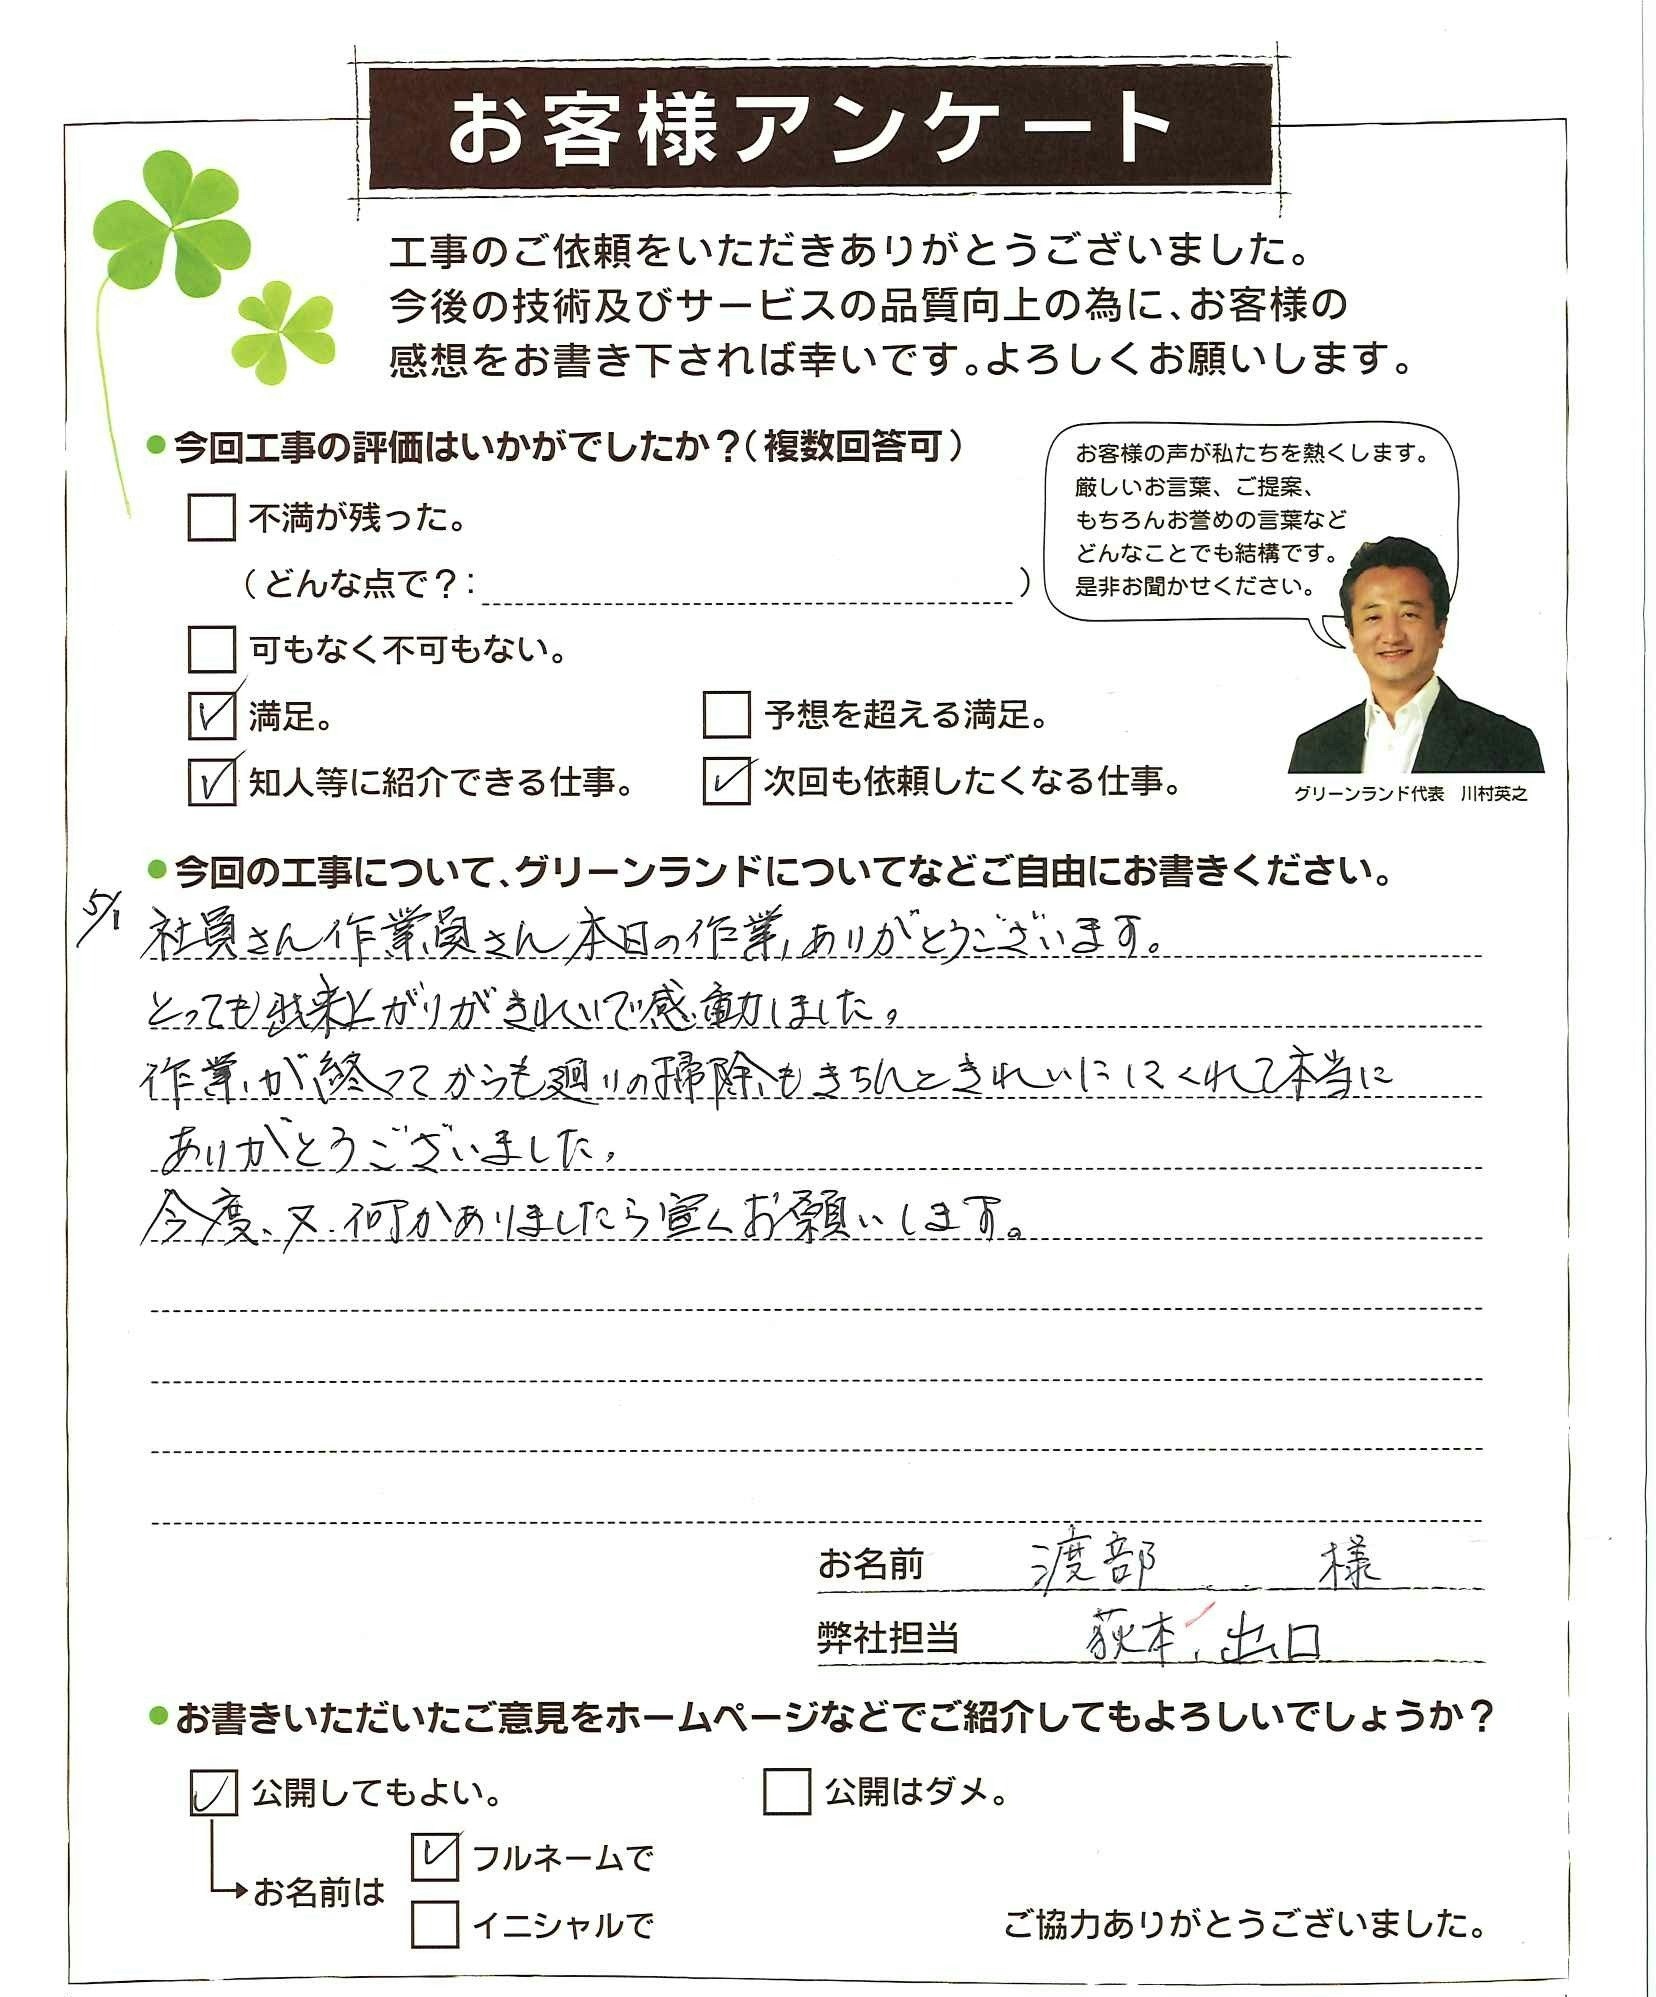 お客様アンケート
工事のご依頼をいただきありがとうございました。
今後の技術及びサービスの品質向上の為に、お客様の
感想をお書き下されば幸いです。よろしくお願いします。
●今回工事の評価はいかがでしたか？（複数回答可）
不満が残った。
（どんな点で？：）
可もなく不可もない。
満足。
予想を超える満足。
知人等に紹介できる仕事。
次回も依頼したくなる仕事。
お客様の声が私たちを熱くします。
厳しいお言葉、ご提案、
もちろんお誉めの言葉など
どんなことでも結構です。
是非お聞かせください。
グリーンランド代表　川村英之
●今回の工事について、グリーンランドについてなどご自由にお書きください。
5/1
社員さん作業員さん本日の作業、ありがとうございます。
とっても出来上がりがきれいで感動しました。
作業が終ってからも廻りの掃除もきちんときれいにしてくれて本当に
ありがとうございました。
今度、又、何かありましたら宜くお願いします。
お名前　渡部　様
弊社担当　荻本、出口
●お書きいただいたご意見をホームページなどでご紹介してもよろしいでしょうか？
公開してもよい。
公開はダメ。
お名前は
フルネームで
イニシャルで
ご協力ありがとうございました。